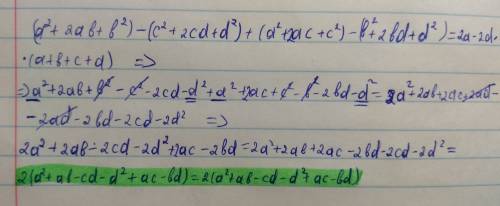 (a²+2ab+b²)-(c²+2cd+d²)+(a²+2ac+c²)-b²+2bd+d²)=2a-2d·
·(a+b+c+d) =>
=> a²+2ab+b²-c²-2cd-d²+a²+2ac+c²-b²-2bd-d²= 2a²+2ab+2ac+2ad-
-2ad-2bd-2cd-2d² =>
2a²+2ab-2cd-2d²+2ac-2bd=2a²+2ab+2ac-2bd-2cd-2d²=
2(a²+ab-cd-d²+ac-bd)=2(a²+ab-cd-d²+ac-bd)